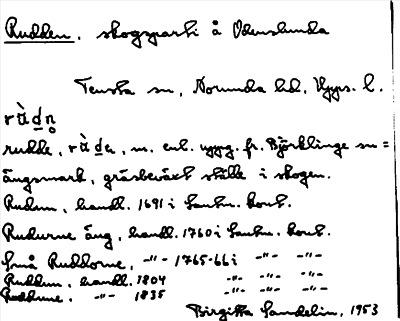 Rudden, skogsparti å Odenslunda
Tensta sn, Norunda hd, Upps. l.
rudde, m. enl. uppg. fr. Björklinge sn =
ängsmark, gräsbeväxt ställe i skogen.
Rudun, handl. 1691 i Lantm. kont.
Rudurne äng, handl. 1760 i Lantm. kont.
Små Ruddorne, -"- 1765-66 i -"- -"-
Ruddun, handl. 1804 -"- -"-
Ruddune, -"- 1835 -"- -"-
Birgitta Sandelin, 1953